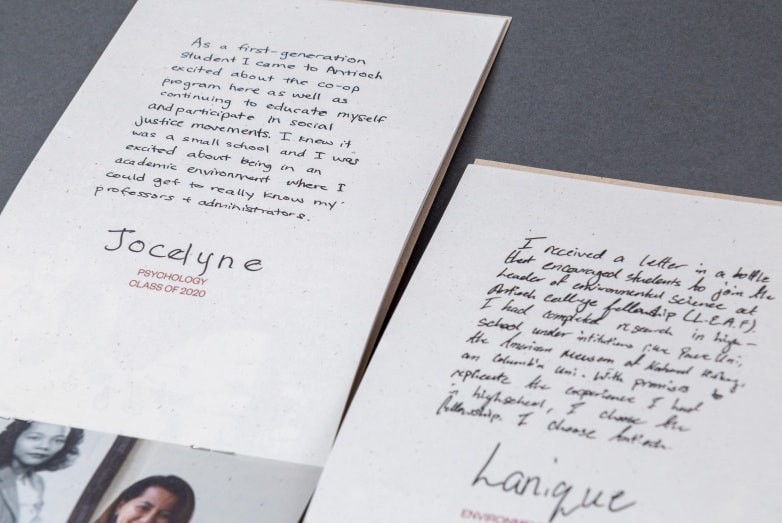 As a first-generation
student I came to Antioch
excited about the co-op
program here as well as
continuing to educate myself
and participate in social
justice movements. I knew it
was a small school and I was
excited about being in an
academic environment where I
could get to really know my
professors + administrators.
Jocelyne
PSYCHOLOGY
CLASS OF 2020
I received a letter in a bottle
that encouraged students to join the
Leader of environmental science at
Antioch College fellowship (L.E.A.F).
I had completed research in high-
school under intitutions like Pace Uni,
the American Museum of Natural History,
an Columbia Uni. With promises to
replicate the experience I had
in highschool, I choose the
fellowship. I choose Antioch.
Lanique